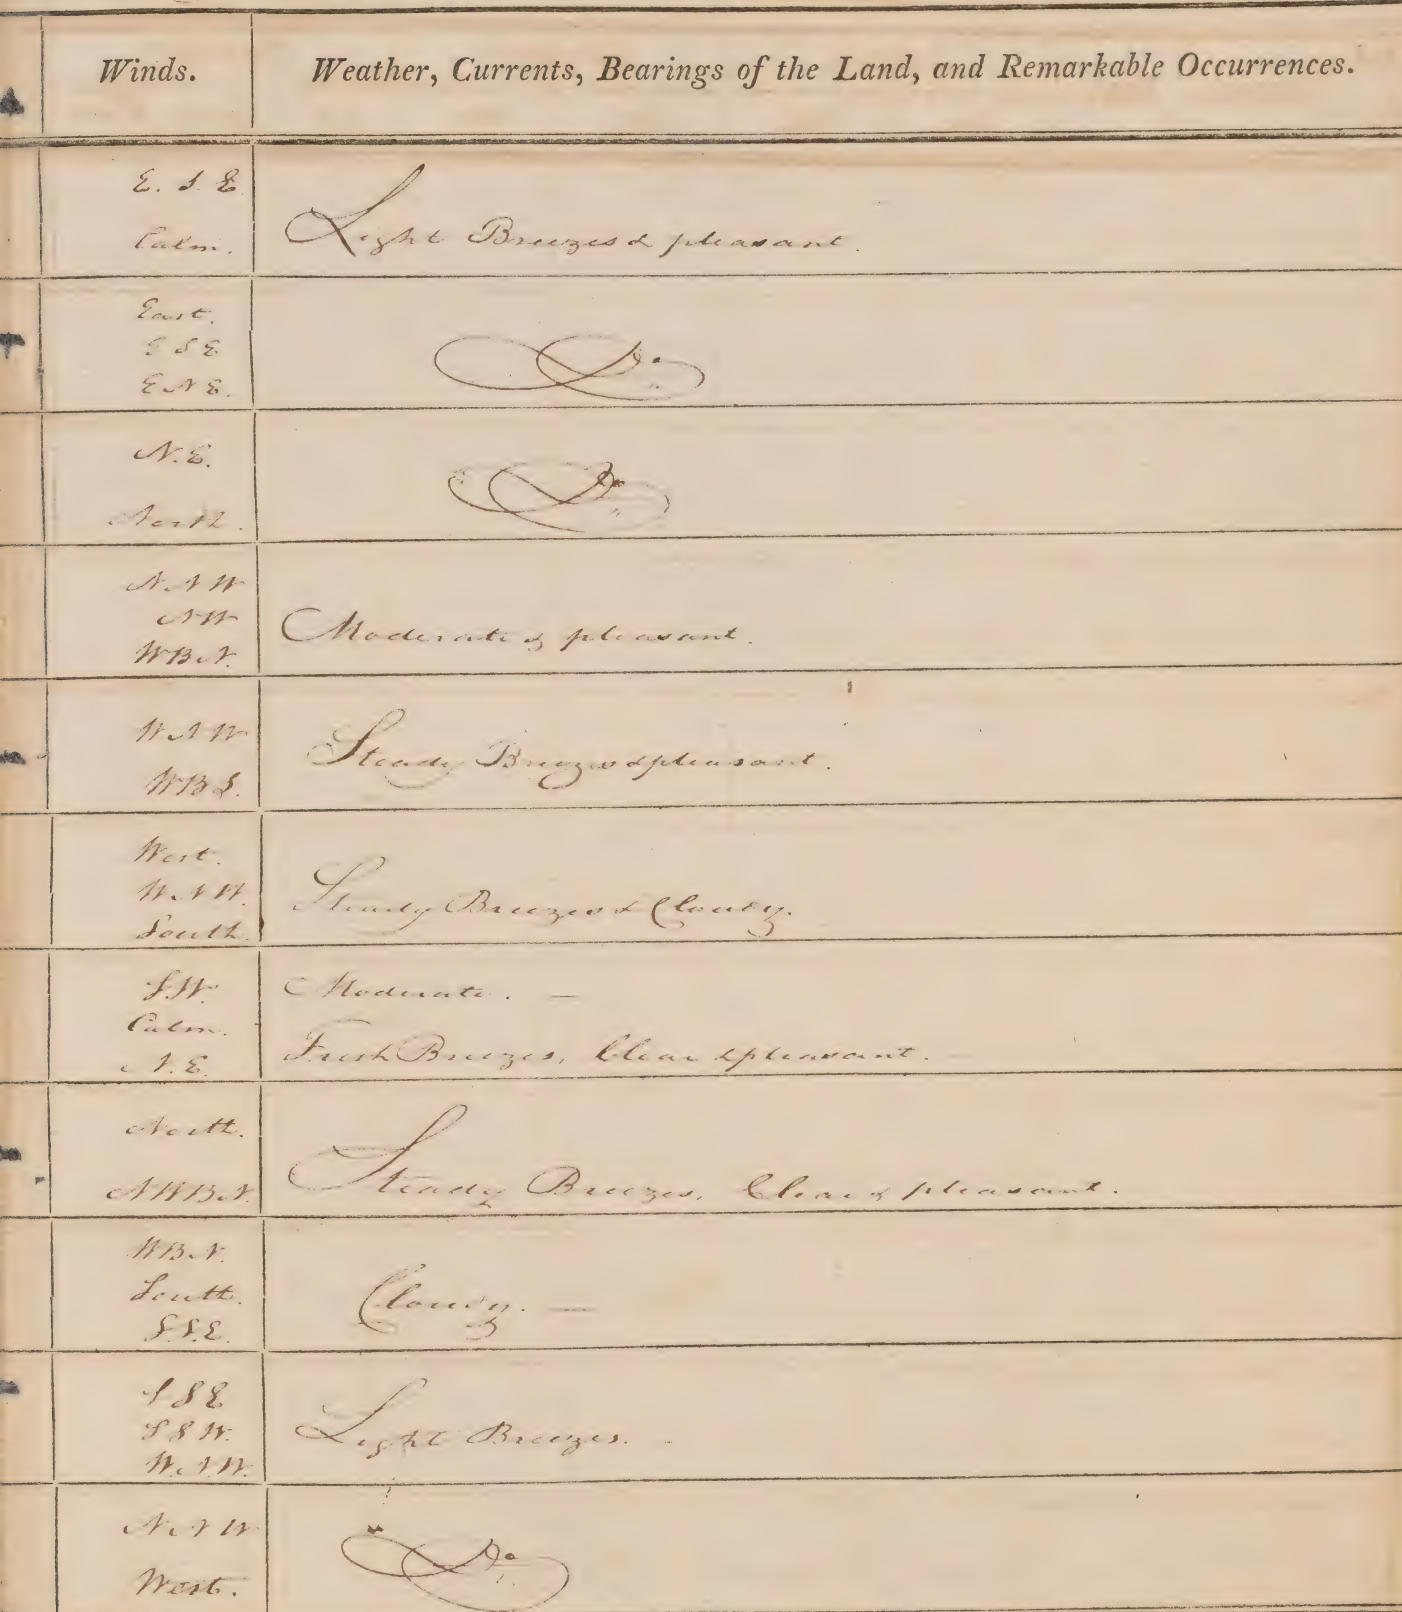 Winds. Weather, Currents, Bearings of the Land, and Remarkable Occurrences.
E. S. E.
Calm. Light Breezes & pleasant.
East.
E S E Do.
E N E.
N. E.
Do.
North.
N. N W
N W Moderate & pleasant.
W B N.
W N W
Steady Breezes & pleasant.
W B S.
West.
W. N W. Steady Breezes & Cloudy.
South.
S. W. Moderate. —
Calm.
N. E. Fresh Breezes, Clear & pleasant.
North.
N W B N. Steady Breezes, Clear & pleasant.
W B N.
South. Cloudy. —
S. S. E.
S S E
S S W. Light Breezes.
W. N. W.
N. N W
Do.
West.